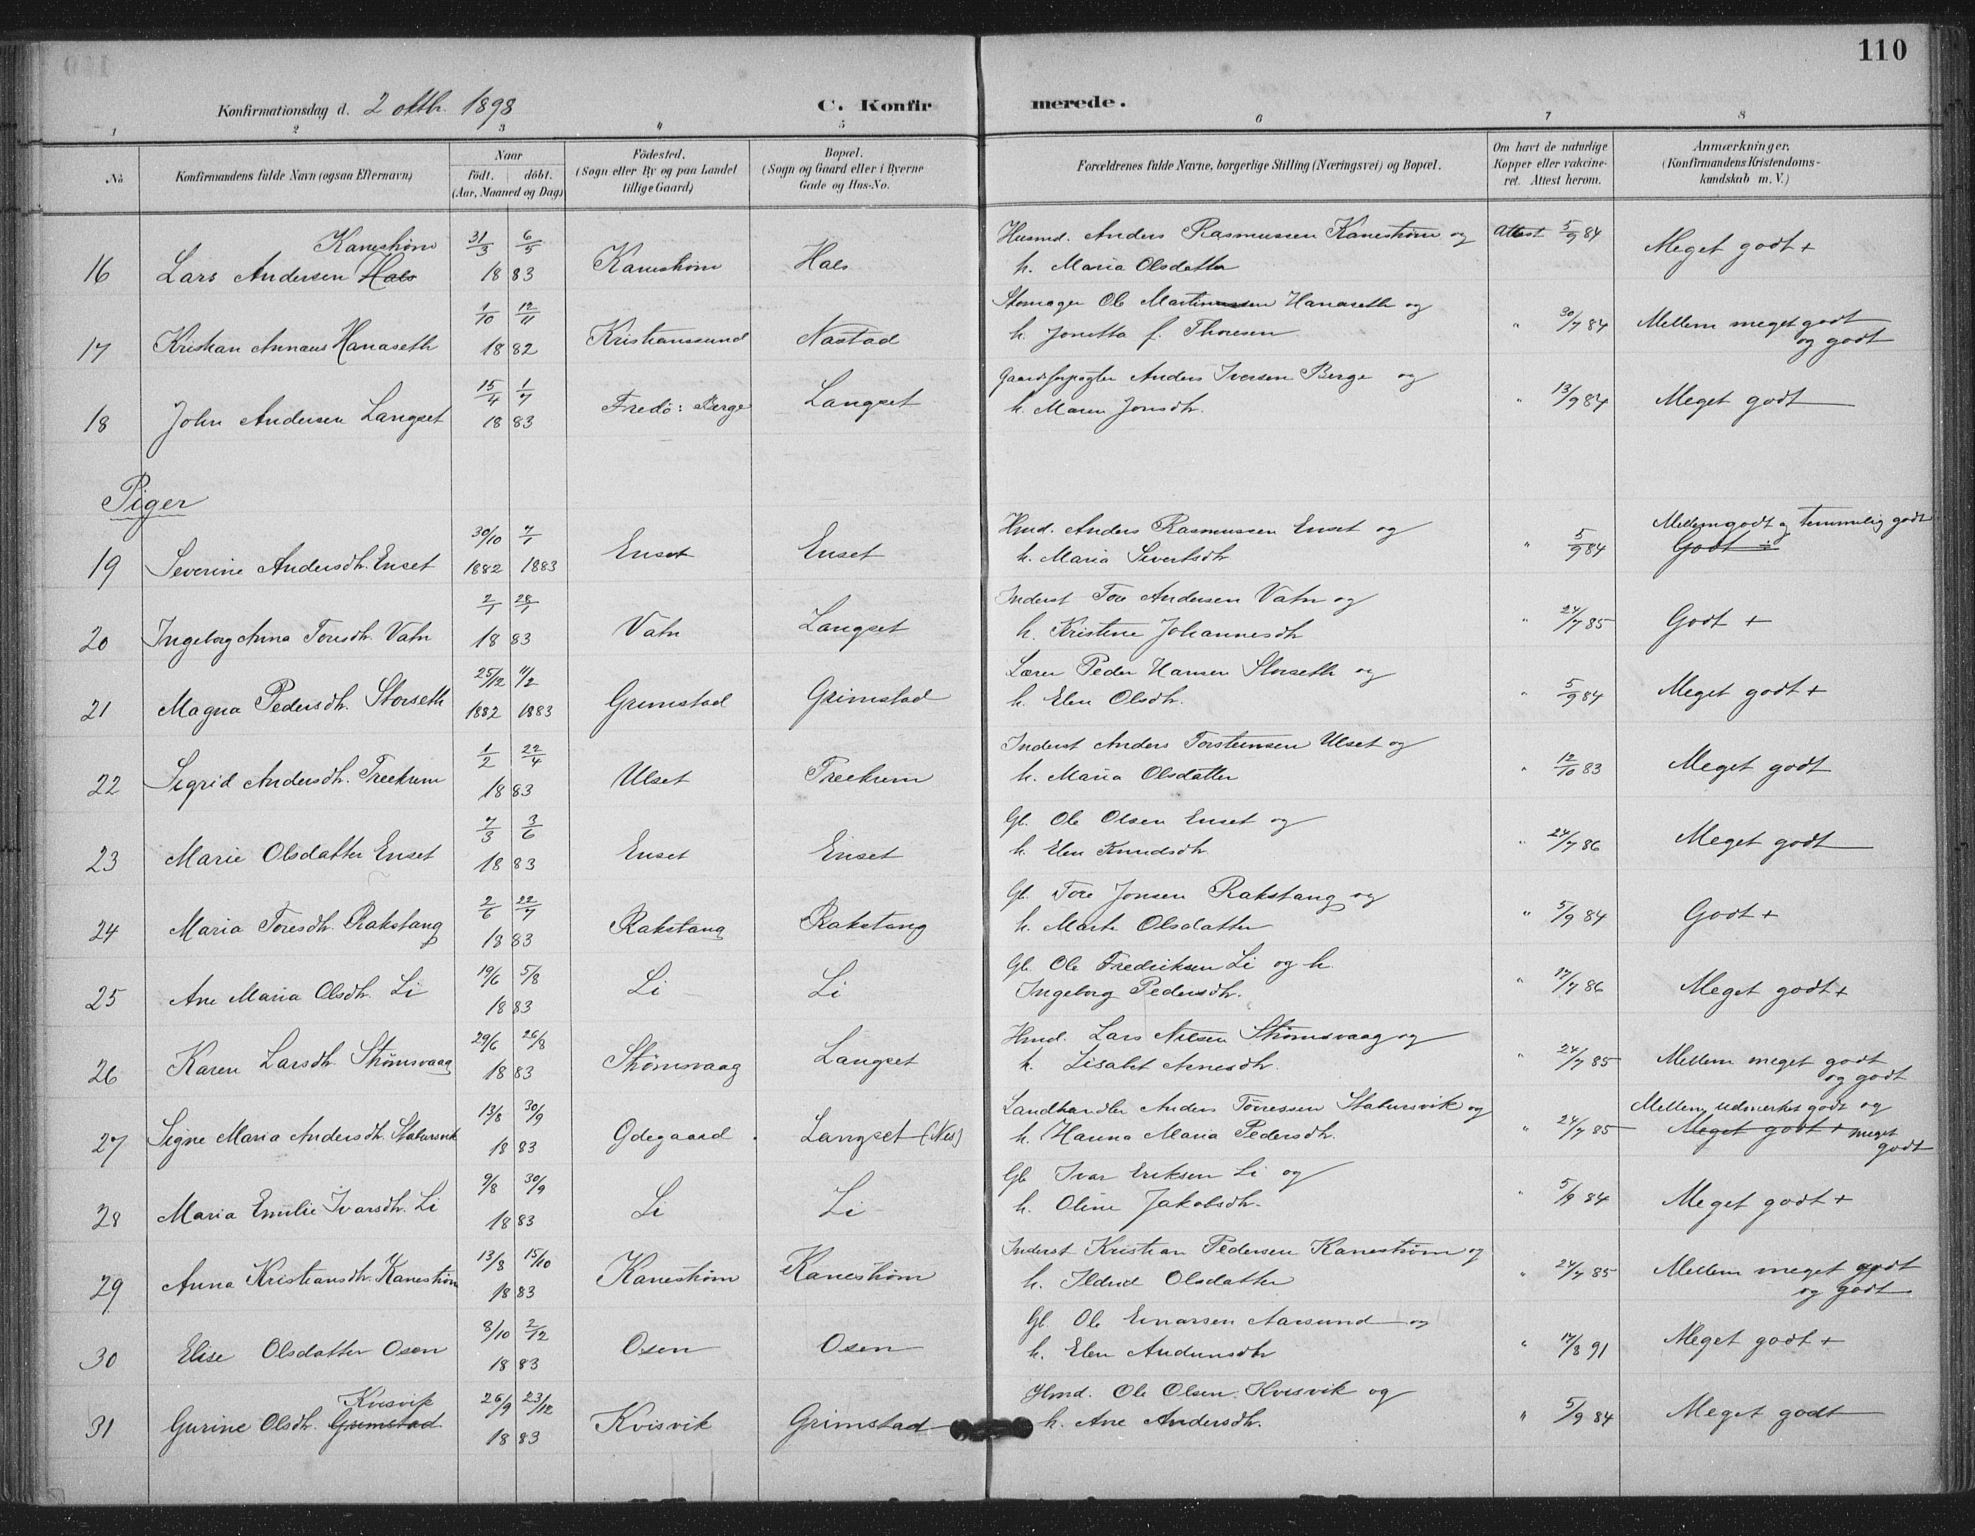 110
Konfirmationsdag d. 2 oktbr. 1898
C. Konfirmerede.
1 2 3 4 5 6 7 8
No. Konfirmandens fulde Navn (ogsaa Efternavn) Naar födt. döbt. (Aar, Maaned og Dag) Födested. (Sogn eller By og paa Landet tillige Gaard) Bopæl. (Sogn og Gaard eller i Byerne Gade og Hus-No. Forældrenes fulde Navne, borgerlige Stilling (Næringsvei) og Bopæl. Om havt de naturlige Kopper eller vakcineret. Attest herom. Anmærkninger. (Konfirmandens Kristendomskundskab m. V.)
Kanestrøm 31/3 6/5 Husmd. Anders Rasmussen Kanestrøm og Attest 5/9 84
16 Lars Andersen Hals 1883 Kanestrøm Hals h. Maria Olsdatter Meget godt +
1/10 12/11 Skomager Ole Martinussen Hanaseth og
17 Kristian Annæus Hanaseth 1882 Kristianssund Nastad h. Jonetta f. Thoresen " 30/7 84 Mellem meget godt
og godt
15/4 1/7 Gaardforpagter Anders Iversen Berge og
18 John Andersen Langset 1883 Fredø: Berge Langset h. Maren Jonsdtr. " 13/9 84 Meget godt
Piger
30/10 7/1 Hmd. Anders Rasmussen Enset og Mellem godt og temmelig godt
19 Severine Andersdtr. Enset 1882 1883 Enset Enset h. Maria Sivertsdtr " 5/9 84 Godt ÷
2/1 28/1 Inderst Tore Andersen Vatn og
20 Ingeborg Anna Toresdtr. Vatn 1883 Vatn Langset h. Kristine Johannesdtr " 24/7 85 Godt +
25/12 11/2 Lærer Peder Hansen Storseth og
21 Magna Pedersdtr. Storseth 1882 1883 Grimstad Grimstad h. Elen Olsdtr. " 5/9 84 Meget godt +
1/2 22/4 Inderst Anders Torsteinsen Ulset og
22 Sigrid Andersdtr. Treekrem 1883 Ulset Treekrem h. Maria Olsdatter " 12/10 83 Meget godt
7/3 3/6 Gb. Ole Olsen Enset og
23 Marie Olsdatter Enset 1883 Enset Enset h. Elen Knudsdtr. " 24/7 86 Meget godt
2/6 22/7 Gb. Tore Jonsen Rakstang og
24 Maria Toresdtr. Rakstang 1883 Rakstang Rakstang h. Marte Olsdatter " 5/9 84 Godt +
19/6 5/8 Gb. Ole Fredriksen Li og h.
25 Ane Maria Olsdtr. Li 1883 Li Li Ingeborg Pedersdtr. " 17/7 86 Meget godt +
29/6 26/8 Hmd. Lars Nilsen Strømsvaag og
26 Karen Larsdtr. Strømsvaag 1883 Strømsvaag Langset h. Lisabet Arnesdtr. " 24/7 85 Mellem meget godt
og godt
13/8 30/9 Landhandler Anders Tørressen Statursvik og Mellem udmerket godt og
27 Signe Maria Andersdtr. Statursvik 1883 Ødegaard Langset (Nes) h. Hanna Maria Pedersdtr. " 24/7 85 Meget godt + meget
godt
9/8 30/9 Gb Ivar Eriksen Li og
28 Maria Emilie Ivarsdtr. Li 1883 Li Li h. Oline Jakobsdtr. " 5/9 84 Meget godt +
13/8 15/10 Inderst Kristian Pedersen Kanestrøm og
29 Anna Kristiansdtr. Kanestrøm 1883 Kanestrøm Kanestrøm h. Ildrid Olsdatter " 24/7 85 Mellem meget godt
og godt
8/10 2/12 Gb. Ole Einarsen Aarsund og
30 Elise Olsdatter Osen 1883 Osen Osen h. Elen Andersdtr " 17/8 91 Meget godt +
Kvisvik 26/9 23/12 Hmd. Ole Olsen Kvisvik og
31 Gurine Olsdtr. Grimstad 1883 Kvisvik Grimstad h. Ane Andersdtr. " 5/9 84 Meget godt